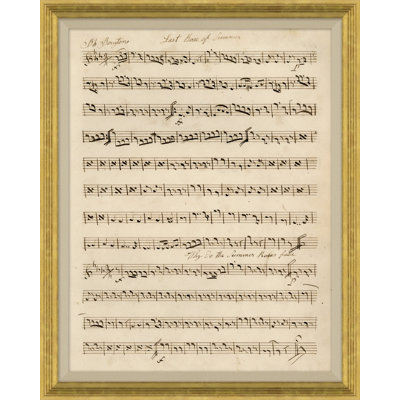 Last Rose of Summer
Why do the Summer Roses fade